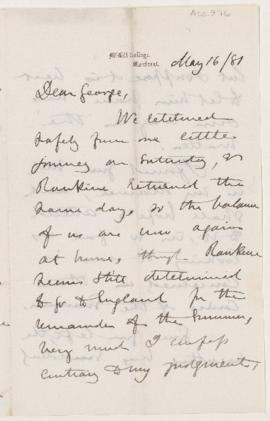 Acc. 976
McGill College,
Montreal.
May 16/81
Dear George,
We returned
safely from our little
journey on Saturday, &
Rankine returned the
same day, so the balance
of us are now again
at home, though Rankine
seems still determined
to go to England for the
remainder of the Summer,
very much I confess
contrary to my judgment,